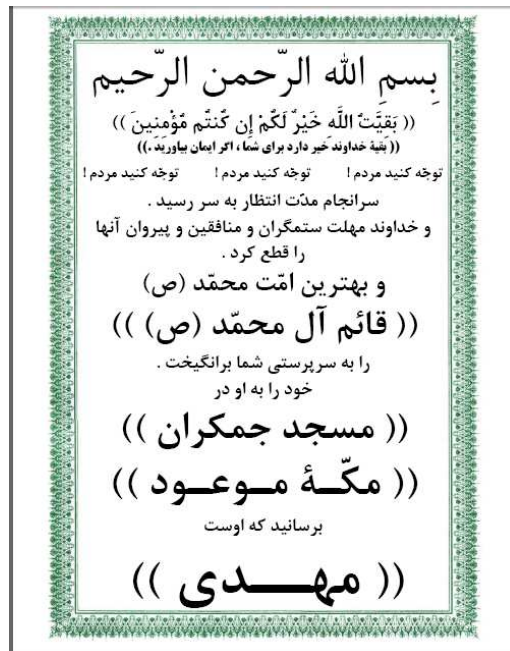 بِسمِ الله الرّحمن الرّحیم
(( بَقِیَّتُ اللَّهِ خَیْرٌ لَکُمْ إِن کُنتُم مُّؤْمِنِینَ ))
(( بقیهٔ خداوند خیر دارد برای شما ، اگر ایمان بیاورید .))
توجّه کنید مردم ! توجّه کنید مردم ! توجّه کنید مردم !
سرانجام مدّت انتظار به سر رسید .
و خداوند مهلت ستمگران و منافقین و پیروان آنها
را قطع کرد .
و بهترین امّت محمّد (ص)
(( قائم آل محمّد (ص) ))
را به سرپرستی شما برانگیخت .
خود را به او در
(( مسجد جمکران ))
(( مکّــهٔ مــوعــود ))
برسانید که اوست
(( مهــــدی ))